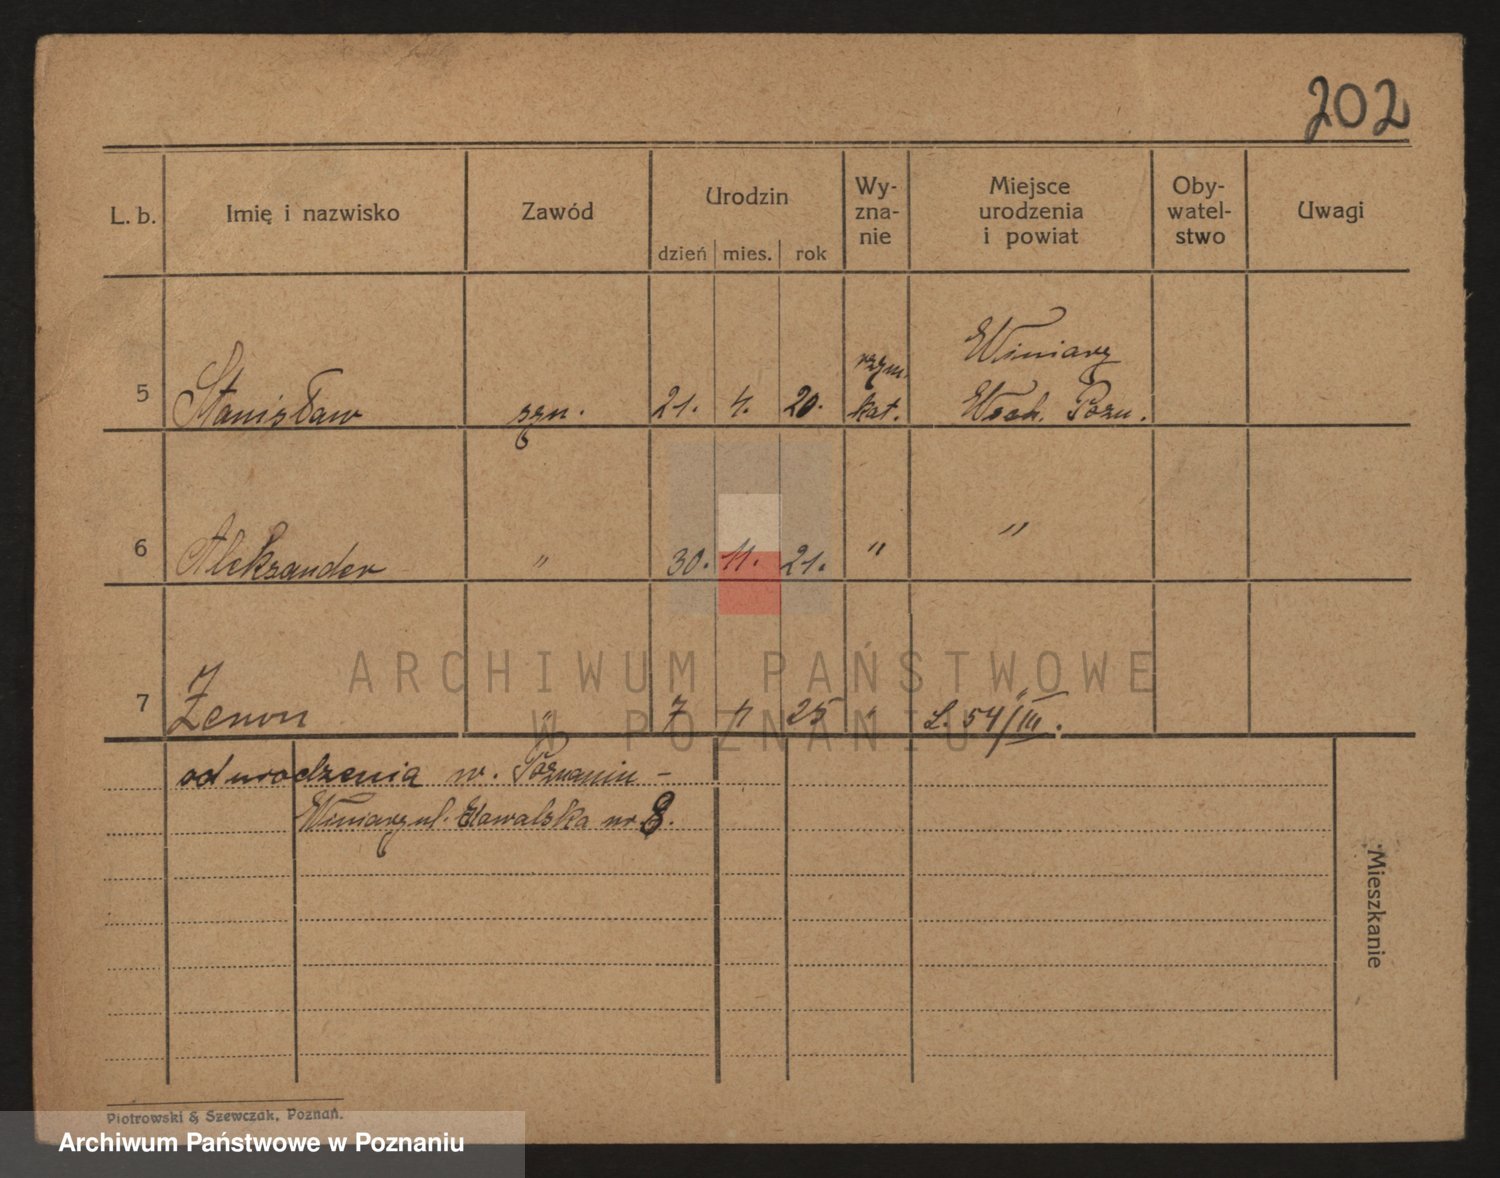 202
L. b. Imię i nazwisko Zawód Urodzin Wy- Miejsce Oby- Uwagi
zna- urodzenia watel-
nie i powiat stwo
dzień mies. rok
Winiary
rzym.
5 Stanisław syn. 21. 4. 20. kat. Wsch. Pozn.
6 Aleksander " 30. 11. 21. " "
7 Zenon " 7 25 " L. 54/III.
od urodzenia w. Poznaniu -
Winiary ul. nr 8.
Mieszkanie
Piotrowski & Szewczak, Poznań.
ARCHIWUM PAŃSTWOWE
W POZNANIU
Archiwum Państwowe w Poznaniu